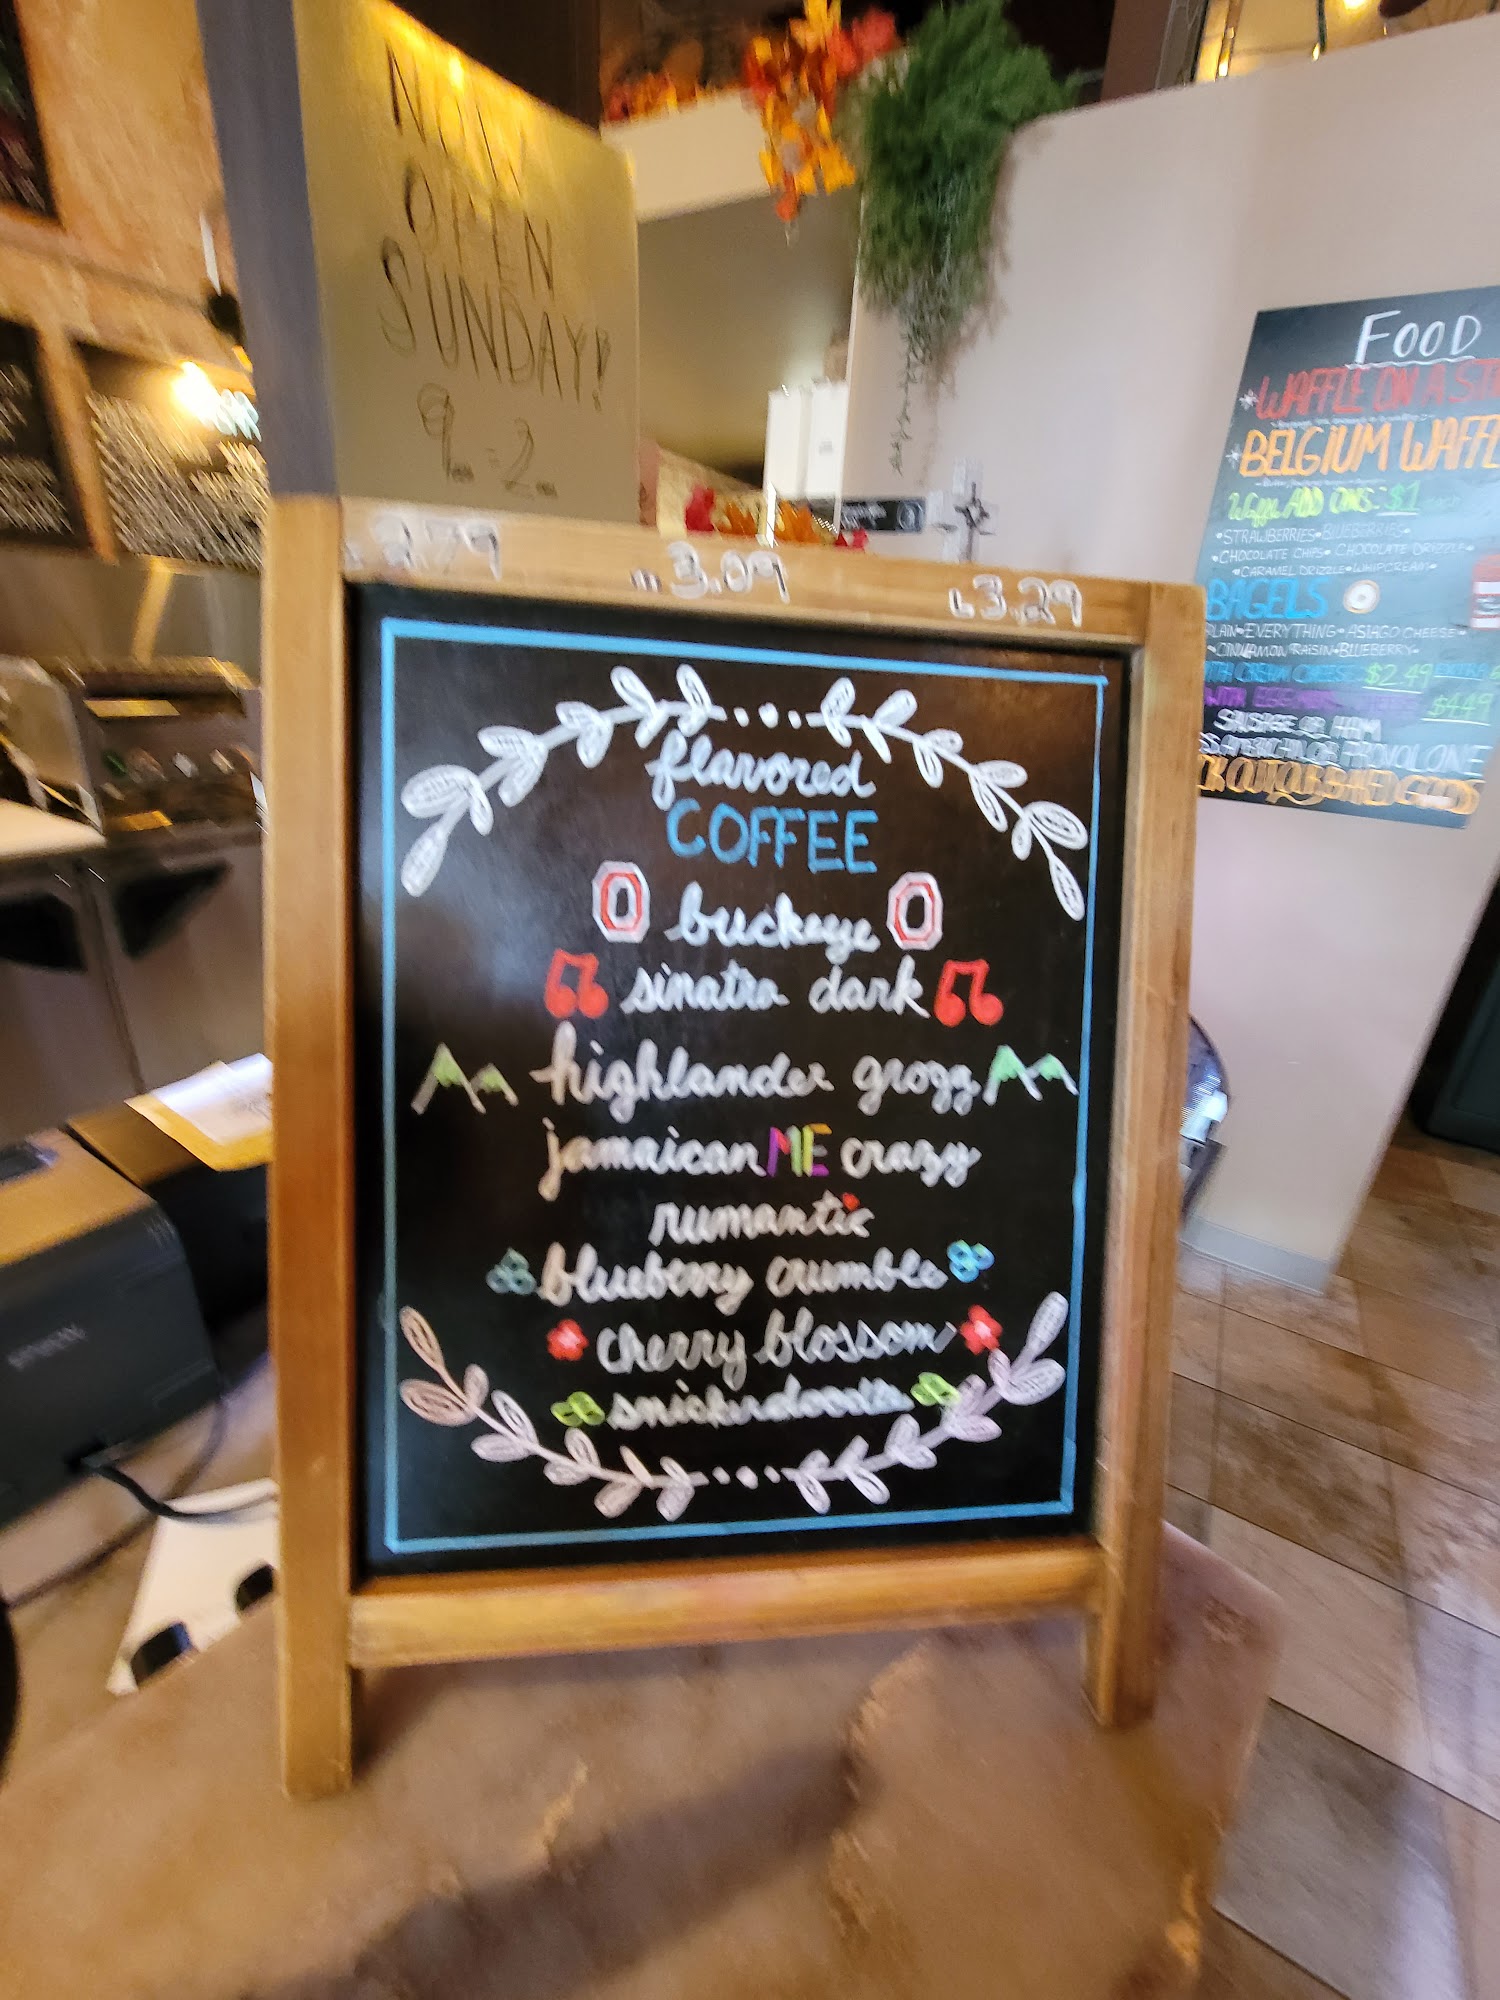 NOW
OPEN
SUNDAY!
9am-2pm
S 2.79 m 3.09 L 3.29
flavored
COFFEE
O buckeye O
sinatra dark
highlander grogg
jamaican ME crazy
rumantic
blueberry crumble
cherry blossom
snickerdoodle
FOOD
WAFFLE ON A
BELGIUM WAFFL
Waffle ADD ONS: $1
STRAWBERRIES • BLUEBERRIES •
• CHOCOLATE CHIPS • CHOCOLATE DRIZZLE •
• CARAMEL DRIZZLE • WHIPCREAM •
BAGELS
PLAIN • EVERYTHING • ASIAGO CHEESE •
• CINNAMON RAISIN • BLUEBERRY •
WITH CREAM CHEESE $2.49 EXTRA
WITH $4.49
SAUSAGE OR HAM
OR PROVOLONE
OUT OUR BAKED GOODS
EPSON